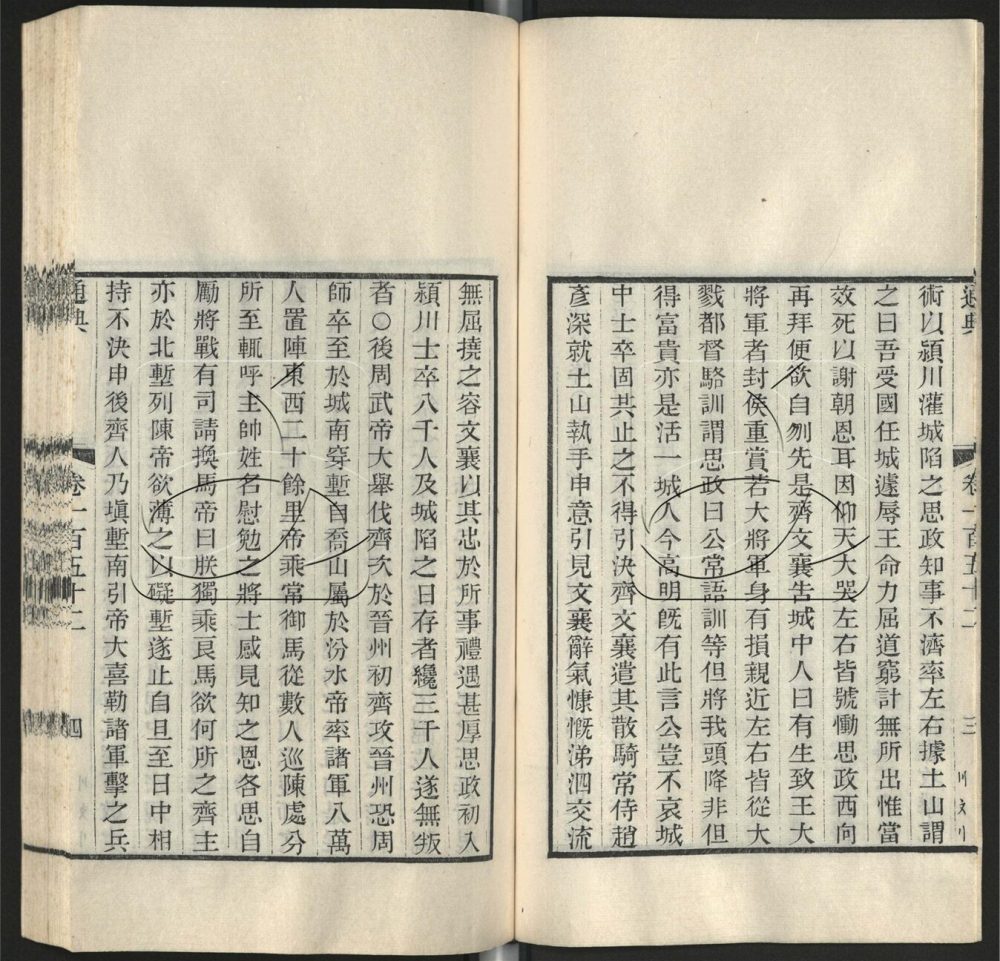 通典
卷一百五十二
三
術以潁川灌城陷之思政知事不濟率左右據土山謂
之曰吾受國任城遽辱王命力屈道窮計無所出惟當
效死以謝朝恩耳因仰天大哭左右皆號慟思政西向
再拜便欲自刎先是齊文襄告城中人曰有生致王大
將軍者封侯重賞若大將軍身有損親近左右皆從大
戮都督駱訓謂思政曰公常語訓等但將我頭降非但
得富貴亦是活一城人今高明旣有此言公豈不哀城
中士卒固共止之不得引決齊文襄遣其散騎常侍趙
彥深就土山執手申意引見文襄辭氣慷慨涕泗交流
無屈撓之容文襄以其忠於所事禮遇甚厚思政初入
潁川士卒八千人及城陷之日存者纔三千人遂無叛
者○後周武帝大舉伐齊次於晉州初齊攻晉州恐周
師卒至於城南穿塹自喬山屬於汾水帝率諸軍八萬
人置陣東西二十餘里帝乘常御馬從數人巡陳處分
所至輒呼主帥姓名慰勉之將士感見知之恩各思自
勵將戰有司請換馬帝曰朕獨乘良馬欲何所之齊主
亦於北塹列陳帝欲薄之以礙塹遂止自旦至日中相
持不決申後齊人乃塡塹南引帝大喜勒諸軍擊之兵
通典
卷一百五十二
四